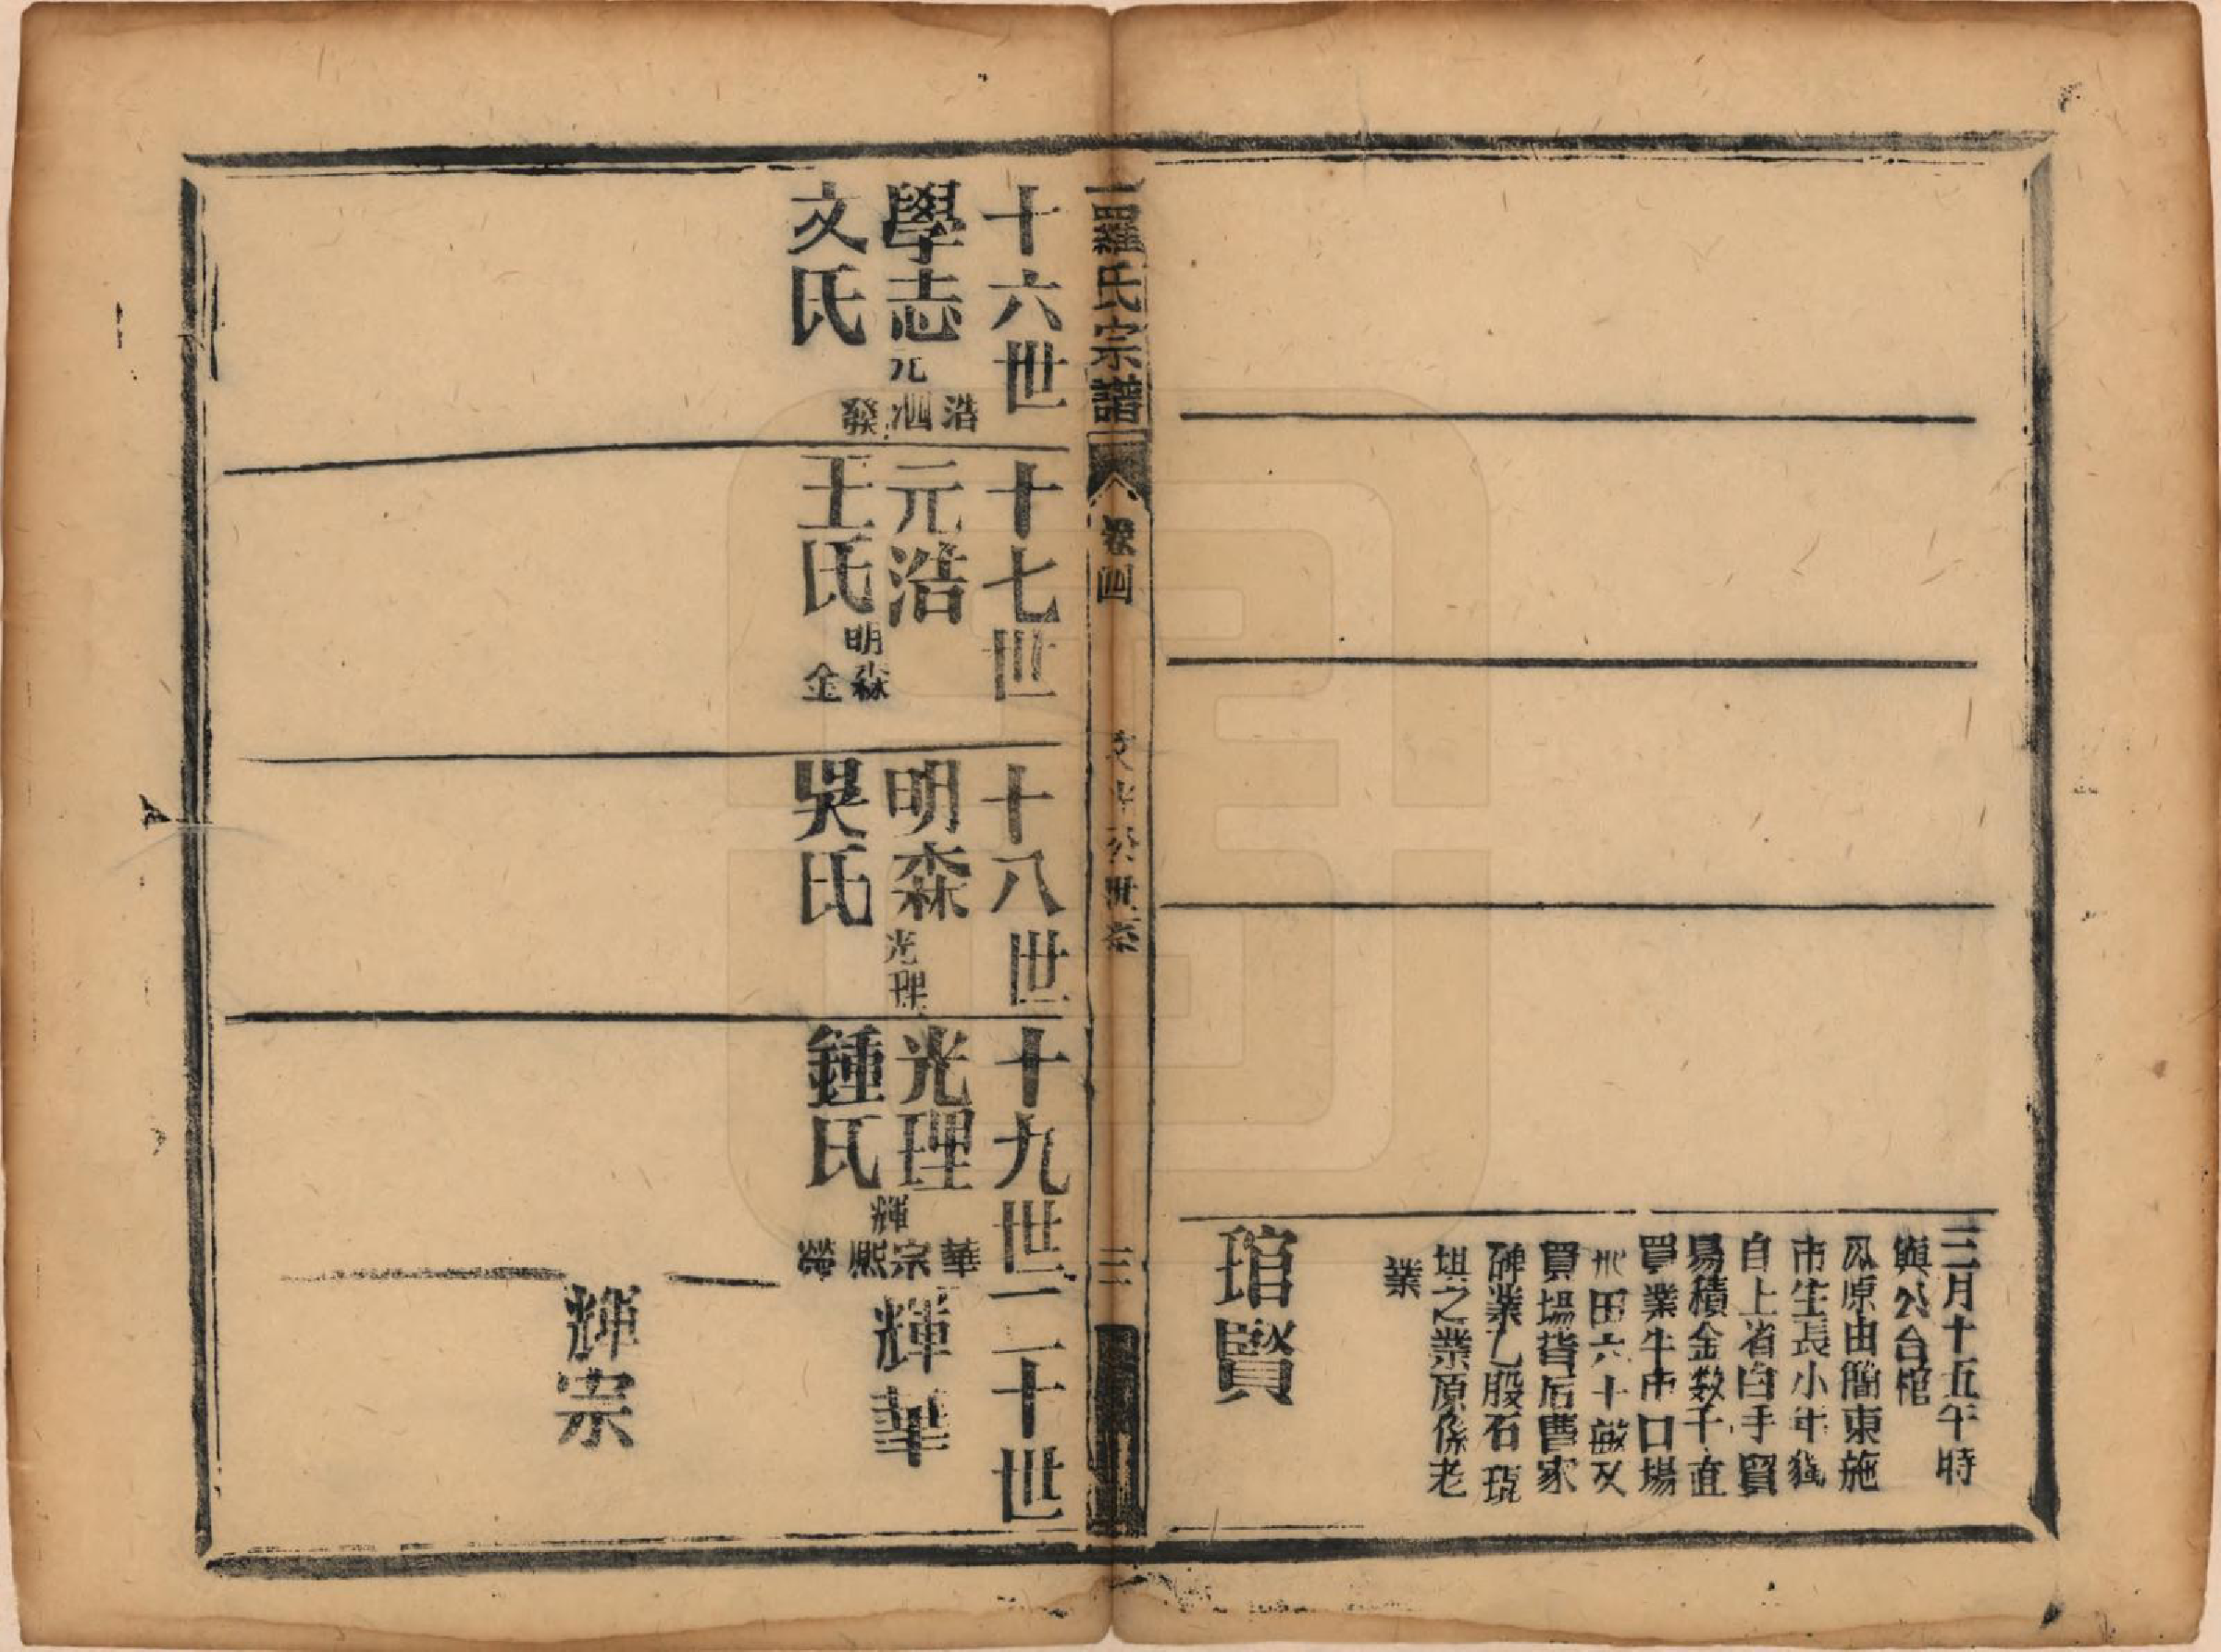 三月十五午時
與公合棺
原由簡東施
市生長小年
自上省白手貿
易積金数千直
買業牛市口場
田六十畝又
買場背后曹家
碑業乙股石
垻之業原係老
業
琯賢
羅氏宗譜
卷四
公世系
三
十六世
學志
元
浩
泗
發
文氏
十七世
元浩
王氏
明
森
金
十八世
明森
光理
吳氏
十九世
光理
鍾氏
輝
華
宗
熙
榮
二十世
輝華
輝宗